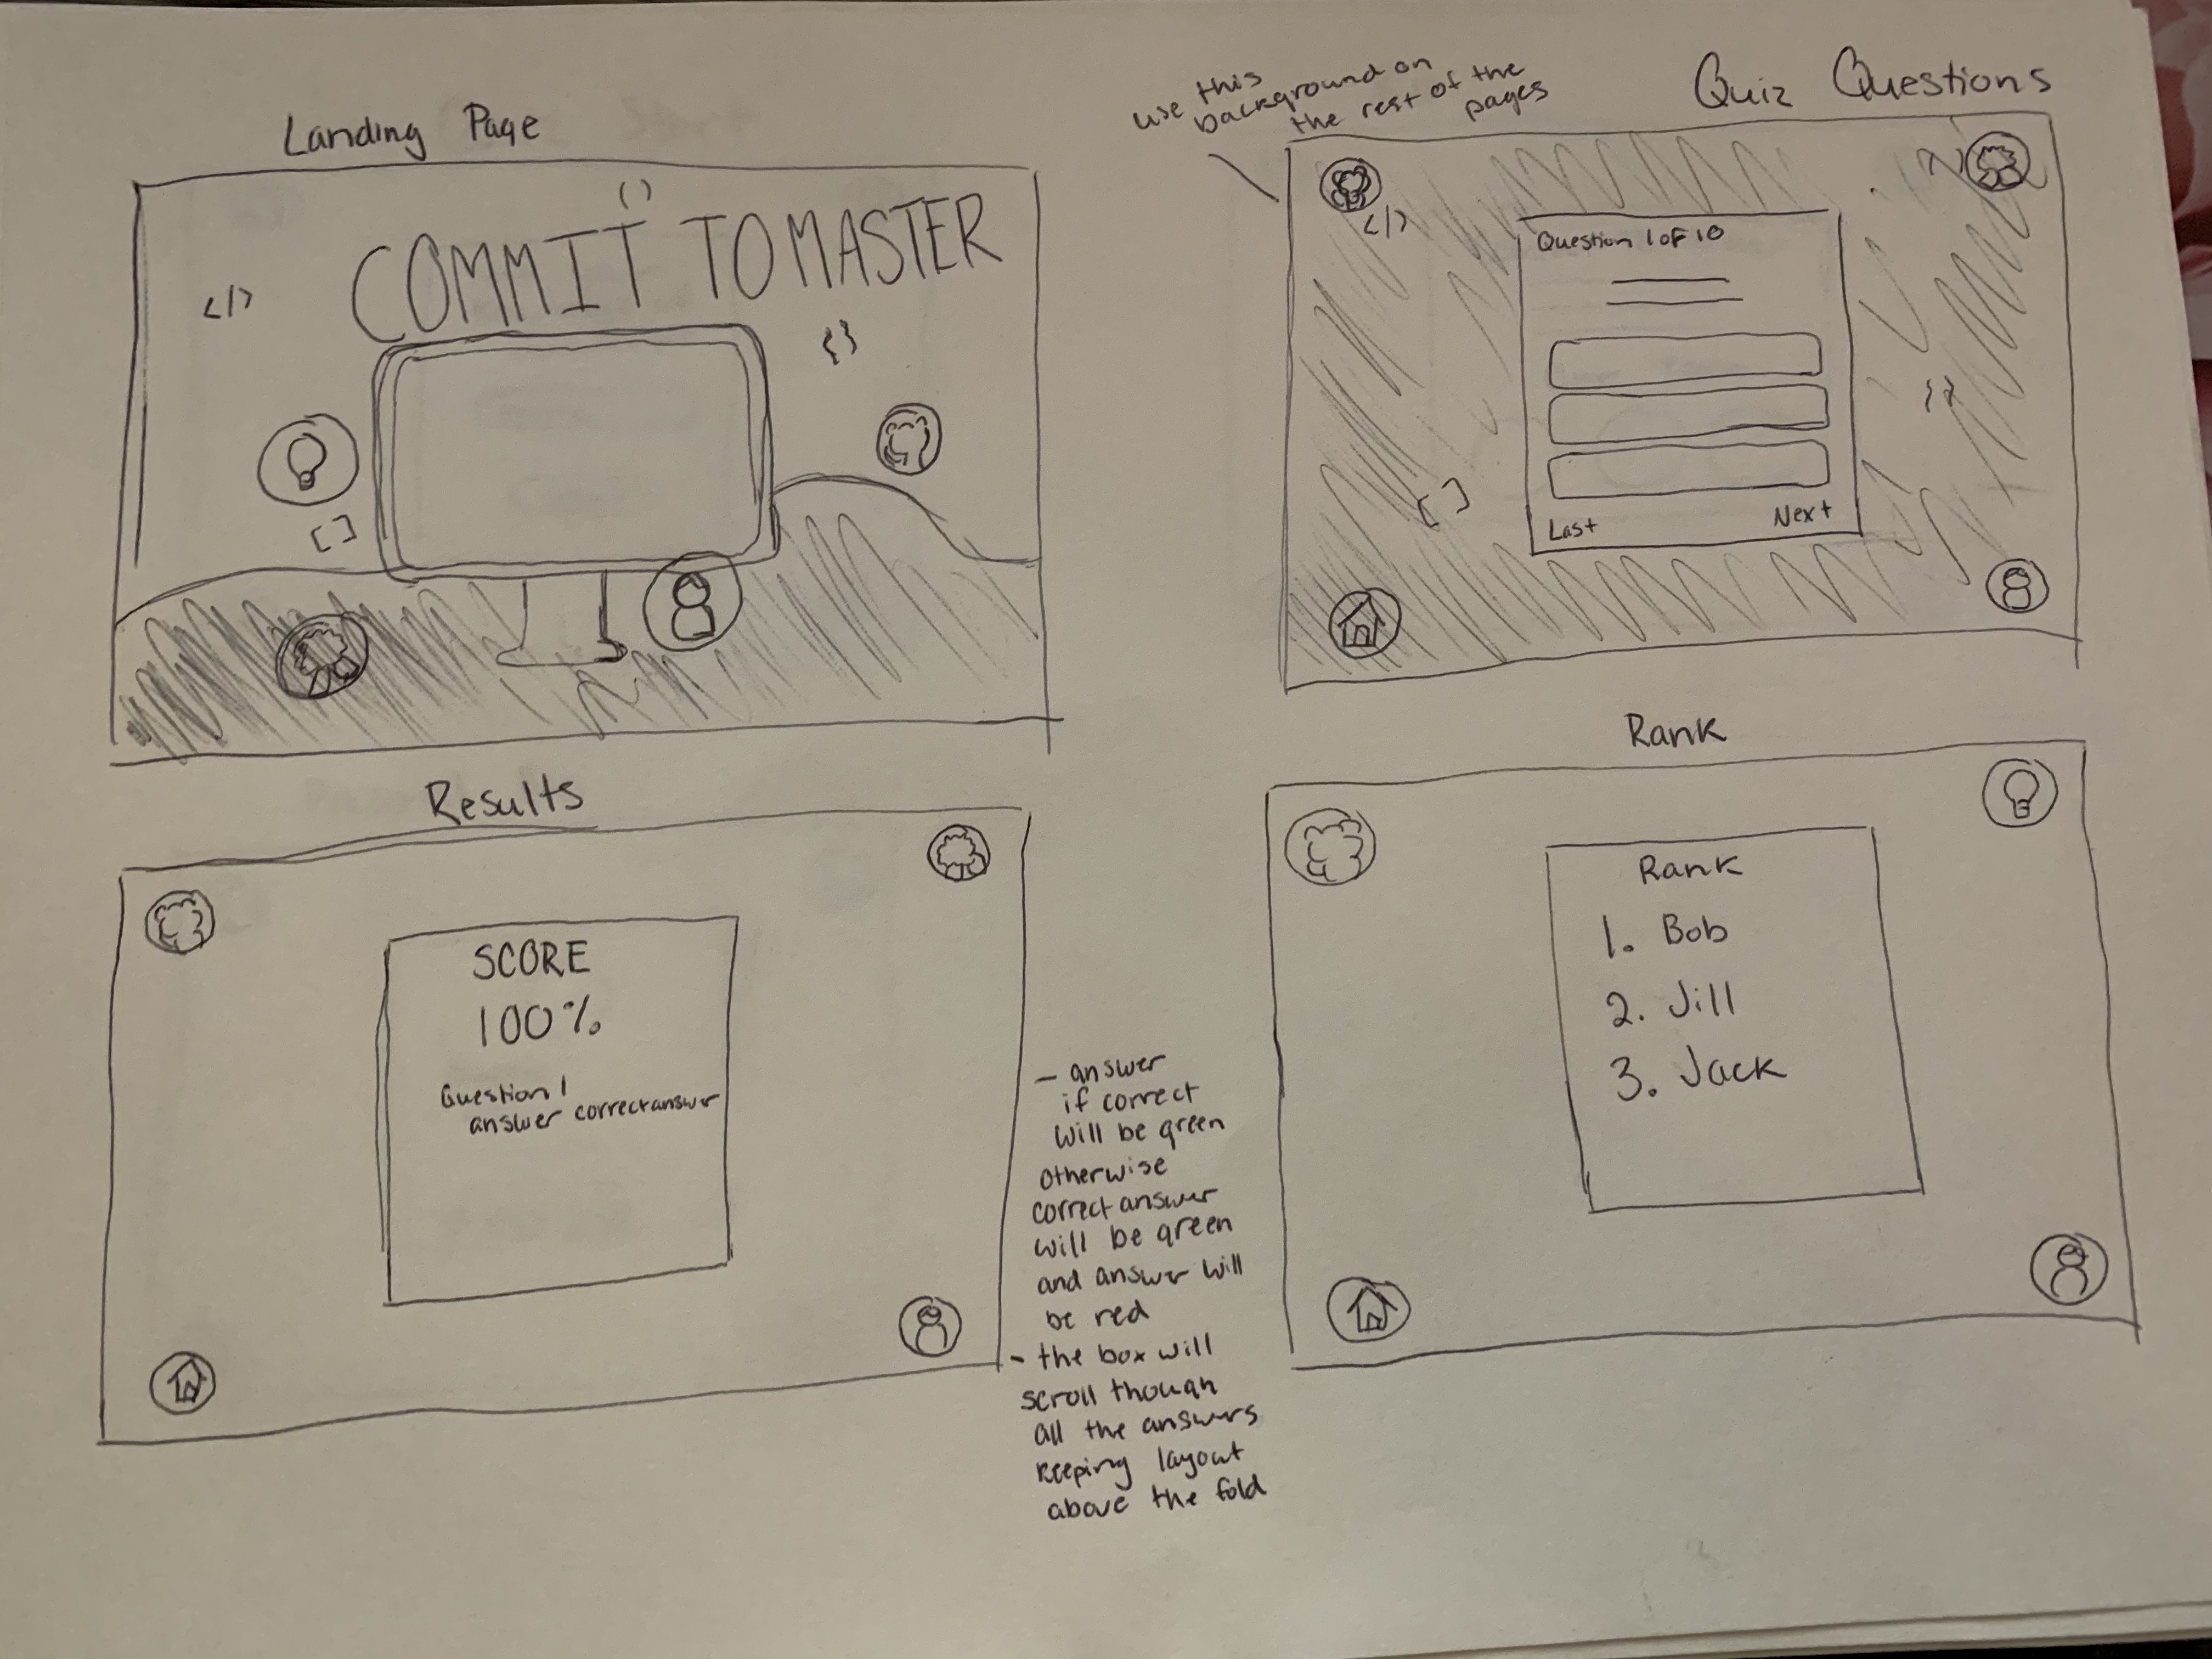 Landing Page
()
COMMIT TO MASTER
</>
{}
[]
use this
background on
the rest of the
pages
Quiz Questions
</>
Question 1 of 10
{}
[]
Last Next
Results
SCORE
100%
Question 1
answer correct answer
- answer
if correct
will be green
otherwise
correct answer
will be green
and answer will
be red
- the box will
scroll though
all the answers
keeping layout
above the fold
Rank
Rank
1. Bob
2. Jill
3. Jack